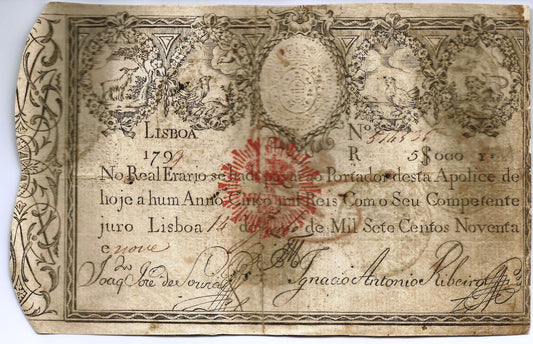 LISBOA Nº
1799 R 5$000 r.
No Real Erario se hade pagar ao Portador desta Apolice de
hoje a hum Anno Cinco mil Reis Com o Seu Competente
juro Lisboa 14 de de Mil Sete Centos Noventa
e nove
Joaqᵐ José de Souza Ignacio Antonio Ribeiro